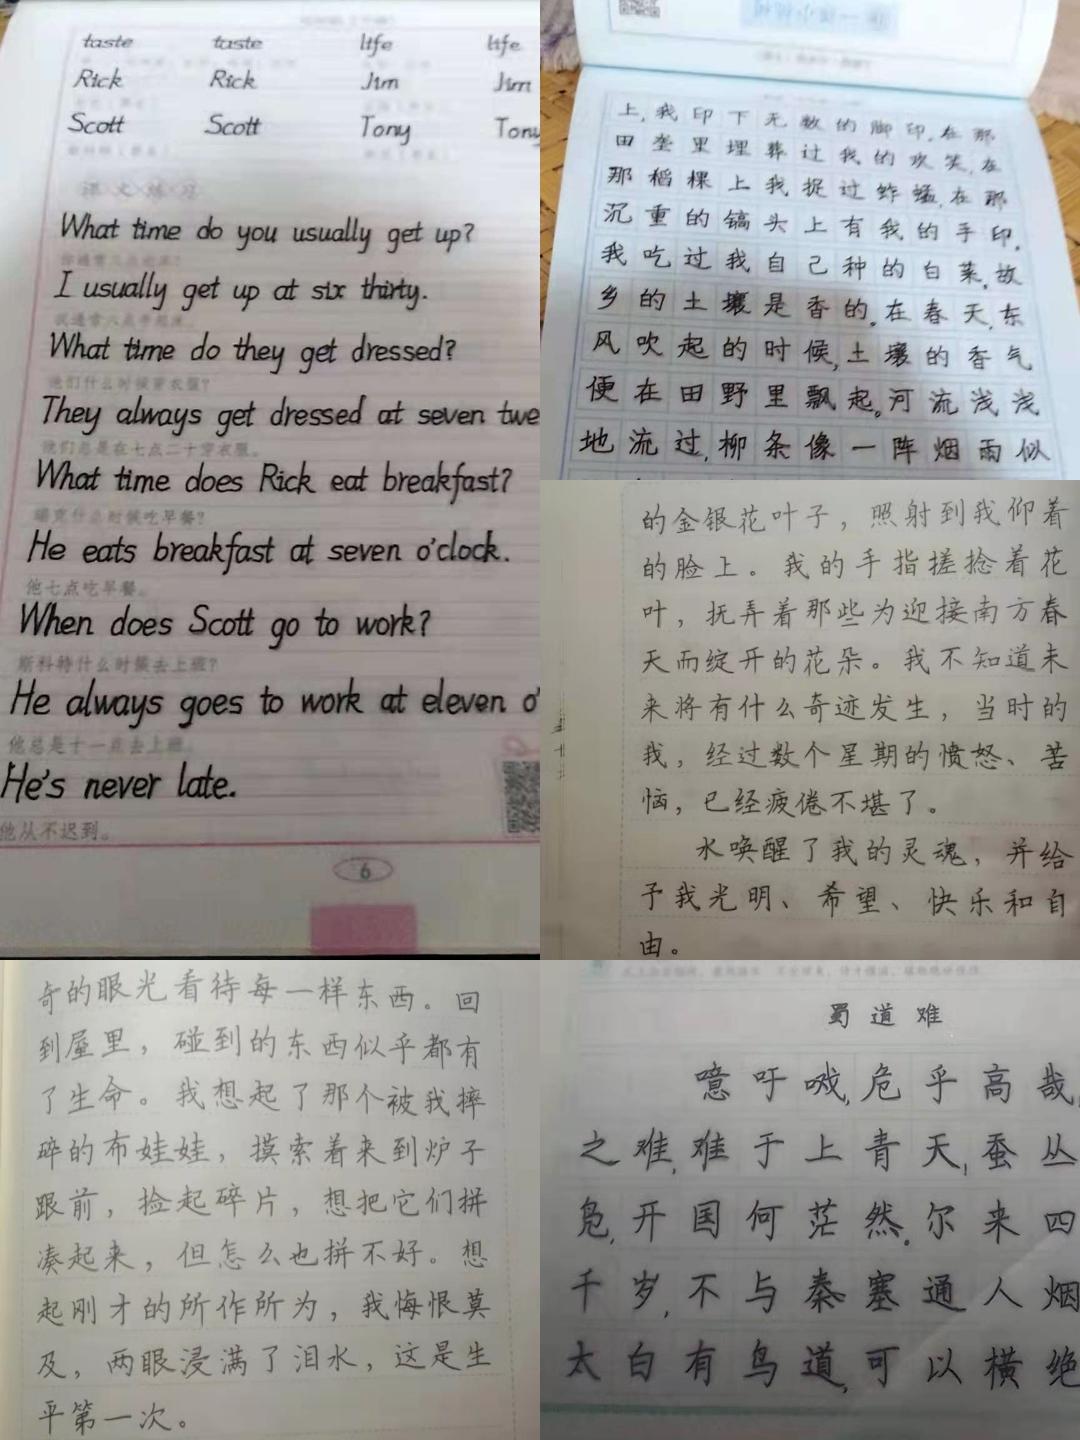 taste taste life life
Rick Rick Jim Jim
Scott Scott Tony Tony
课文练习
What time do you usually get up?
I usually get up at six thirty.
What time do they get dressed?
他们什么时候穿衣服?
They always get dressed at seven twe
他们总是在七点二十穿衣服。
What time does Rick eat breakfast?
瑞克什么时候吃早餐?
He eats breakfast at seven o'clock.
他七点吃早餐。
When does Scott go to work?
斯科特什么时候去上班?
He always goes to work at eleven o'
他总是十一点去上班。
He's never late.
他从不迟到。
6
上,我印下无数的脚印,在那
田垄里埋葬过我的欢笑,在
那稻棵上我捉过蚱蜢,在那
沉重的镐头上有我的手印,
我吃过我自己种的白菜,故
乡的土壤是香的。在春天,东
风吹起的时候,土壤的香气
便在田野里飘起。河流浅浅
地流过,柳条像一阵烟雨似
的金银花叶子，照射到我仰着
的脸上。我的手指搓捻着花
叶，抚弄着那些为迎接南方春
天而绽开的花朵。我不知道未
来将有什么奇迹发生，当时的
我，经过数个星期的愤怒、苦
恼，已经疲倦不堪了。
水唤醒了我的灵魂，并给
予我光明、希望、快乐和自
由。
奇的眼光看待每一样东西。回
到屋里，碰到的东西似乎都有
了生命。我想起了那个被我摔
碎的布娃娃，摸索着来到炉子
跟前，捡起碎片，想把它们拼
凑起来，但怎么也拼不好。想
起刚才的所作所为，我悔恨莫
及，两眼浸满了泪水，这是生
平第一次。
蜀道难
噫吁嚱,危乎高哉,
之难,难于上青天,蚕丛
凫,开国何茫然。尔来四
千岁,不与秦塞通人烟
太白有鸟道,可以横绝